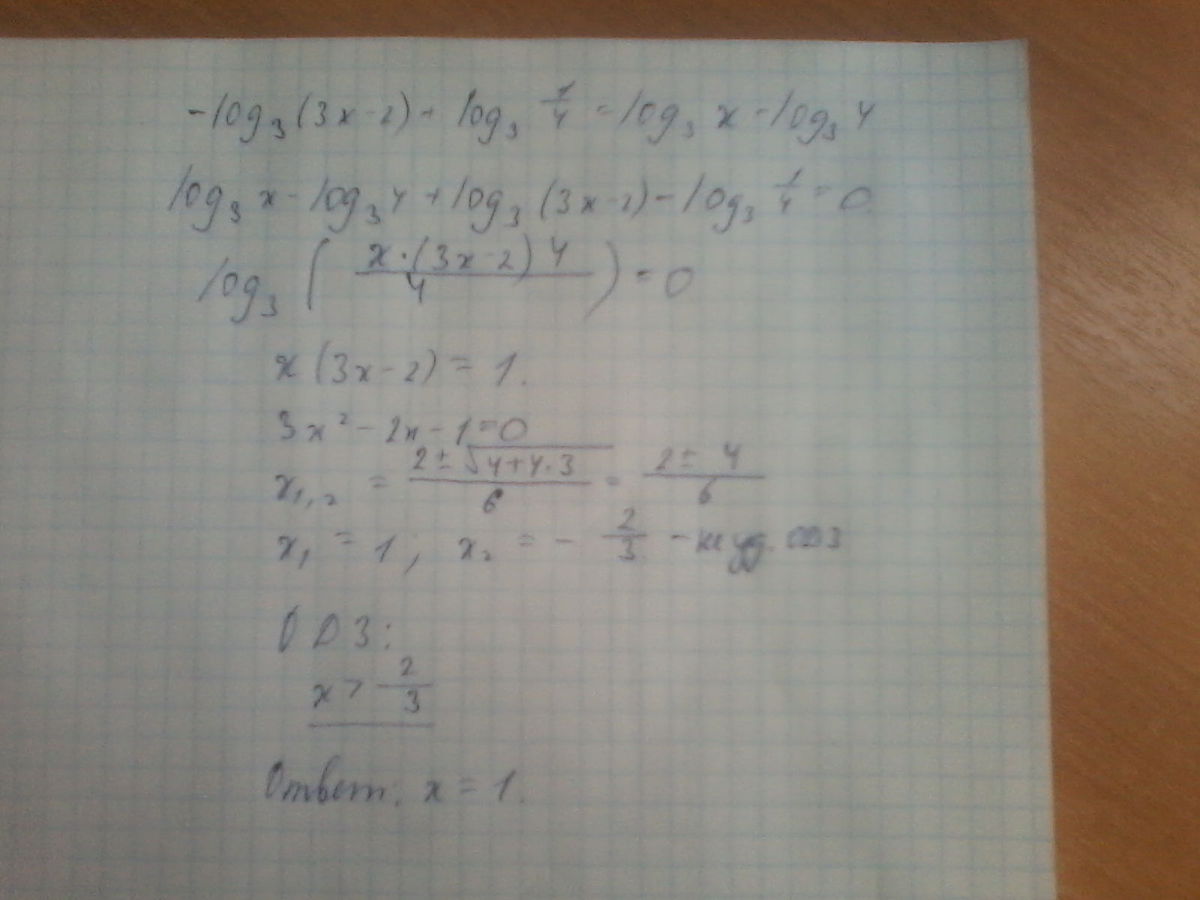 -log₃(3x-2) - log₃ 1/4 = log₃ x - log₃ 4
log₃ x - log₃ 4 + log₃ (3x-2) - log₃ 1/4 = 0.
log₃ ( x·(3x-2) 4 / 4 ) = 0
x (3x-2) = 1.
3x² - 2x - 1 = 0
x₁,₂ = (2 ± √(4+4·3)) / 6 = (2 ± 4) / 6
x₁ = 1; x₂ = - 2/3 - ОДЗ
ОДЗ:
x > 2/3
Ответ: x = 1.